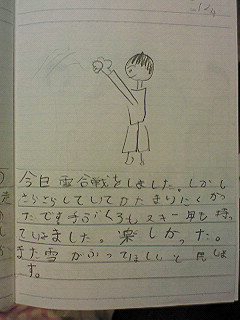 今日雪合戦をしました。しかし
さらさらしていてかたまりにくかっ
たです手ぶくろもスキー用も持っ
ていました。楽しかった。
また雪がふってほしいと思いま
す。